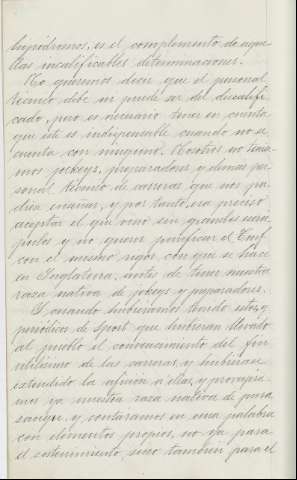 hipódromos, es el complemento de aque-
llas incalificables determinaciones.
No queremos decir que el personal
técnico debe ni puede ser del descalifi-
cado, pero es necesario tener en cuenta
que éste es indispensable cuando no se
cuenta con ninguno. Nosotros no tenía-
mos jockeys, preparadores y demás per-
sonal técnico de carreras que nos po-
dría enseñar, y por tanto, era preciso
aceptar el que vino sin grandes escrú-
pulos y no querer purificar el Turf
con el mismo rigor con que se hace
en Inglaterra, antes de tener nuestra
raza nativa de jokeys y preparadores.
Y cuando hubiéramos tenido estos, y
periódicos de Sport que hubieran llevado
al pueblo el convencimiento del fin
utilísimo de las carreras, y hubieran
extendido la afición a ellas, y
mos ya nuestra raza nativa de pura
sangre, y contáramos en una palabra
con elementos propios, no ya para
el sostenimiento, sino también para el